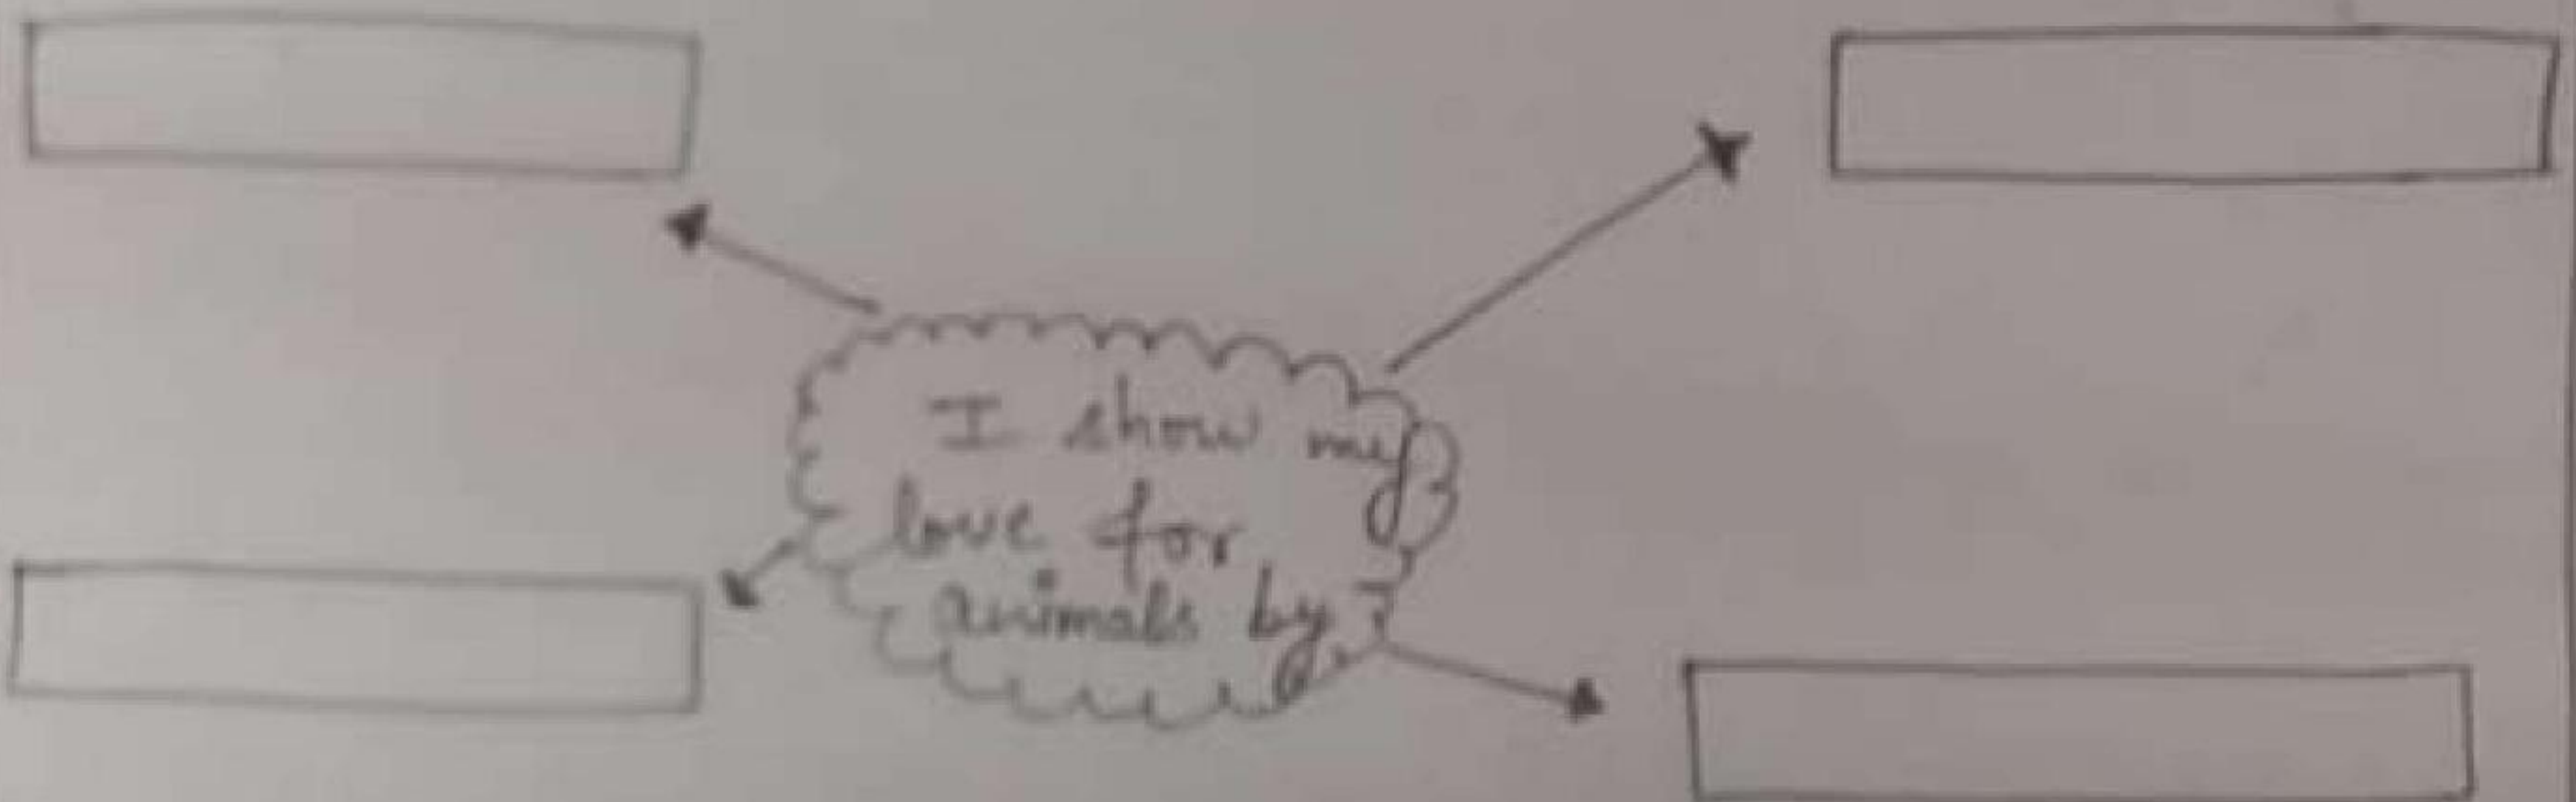 I show my
love for
animals by